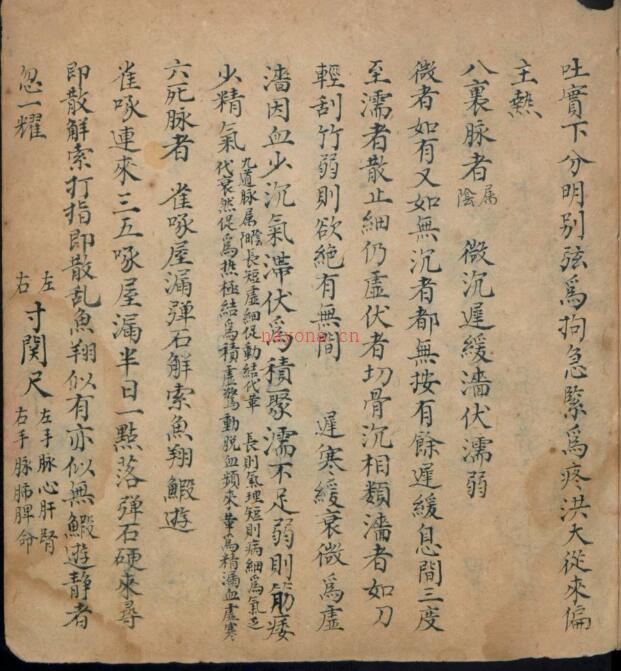 吐實下分明別弦爲拘急緊爲疼洪大從來偏
主热
八裏脉者属陰　微沉遲緩濇伏濡弱
微者如有又如無沉者都無按有餘遲緩息間三度
至濡者散止細仍虚伏者切骨沉相類濇者如刀
輕刮竹弱則欲絶有無間　遲寒緩衰微爲虚
濇因血少沉氣滞伏爲積聚濡不足弱則筋痿
少精氣
九道脉属陰長短虚細促動結代革　長則氣理短則病細爲氣乏
代衰然促爲热極結爲積虚驚動脱血頻來革爲精漏血虚寒
六死脉者　雀啄屋漏弹石解索魚翔鰕遊
雀啄連來三五啄屋漏半日一點落弹石硬來尋
即散解索打指即散乱魚翔似有亦似無鰕遊静者
忽一耀
左右　寸関尺　左手脉心肝腎
右手脉肺脾命
nayona.cn